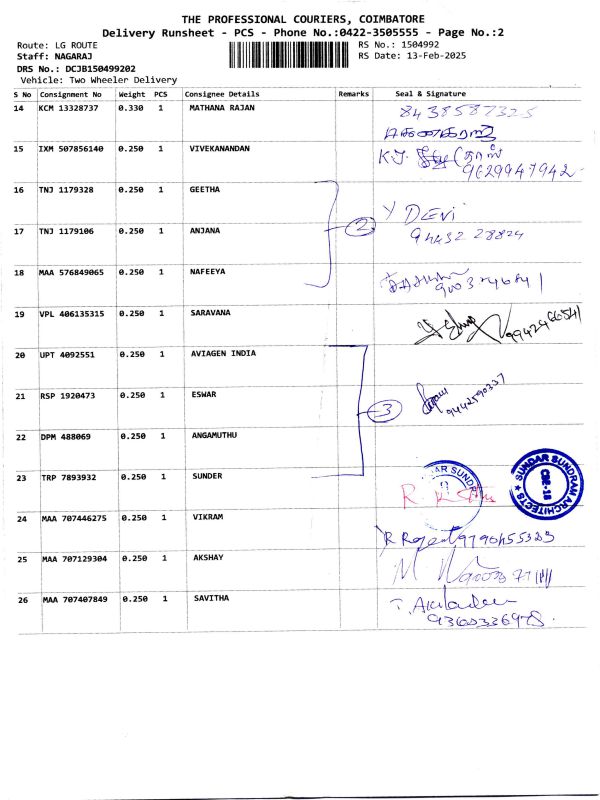 THE PROFESSIONAL COURIERS, COIMBATORE
Delivery Runsheet - PCS - Phone No.:0422-3505555 - Page No.:2
Route: LG ROUTE
RS No.: 1504992
Staff: NAGARAJ
RS Date: 13-Feb-2025
DRS No.: DCJB150499202
Vehicle: Two Wheeler Delivery
S No Consignment No Weight PCS Consignee Details Remarks Seal & Signature
14 KCM 13328737 0.330 1 MATHANA RAJAN 8438587325
15 IXM 507856140 0.250 1 VIVEKANANDAN K.J.
9629947942
16 TNJ 1179328 0.250 1 GEETHA
Y DEVI
17 TNJ 1179106 0.250 1 ANJANA 2 94432 28824
18 MAA 576849065 0.250 1 NAFEEYA
9003746841
19 VPL 406135315 0.250 1 SARAVANA
20 UPT 4092551 0.250 1 AVIAGEN INDIA
21 RSP 1920473 0.250 1 ESWAR 3 9442590337
22 DPM 488069 0.250 1 ANGAMUTHU
23 TRP 7893932 0.250 1 SUNDER
SUNDAR SUNDRAM ARCHITECTS
CBE-18
24 MAA 707446275 0.250 1 VIKRAM
9790455323
25 MAA 707129304 0.250 1 AKSHAY
26 MAA 707407849 0.250 1 SAVITHA
9360336978